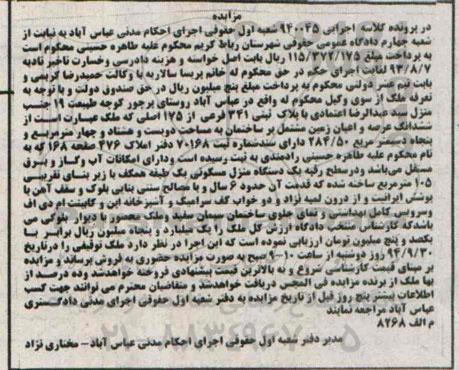 مزایده
در پرونده کلاسه اجرایی ۹۴۰۰۴۵ شعبه اول حقوقی اجرای احکام مدنی عباس آباد به نیابت از
شعبه چهارم دادگاه عمومی حقوقی شهرستان رباط کریم محکوم علیه طاهره حسینی محکوم است
به پرداخت مبلغ ۱۱۵/۳۷۲/۱۷۵ ریال بابت اصل خواسته و هزینه دادرسی و خسارت تاخیر تادیه
۹۳/۸/۷ لغایت اجرای حکم در حق محکوم له خانم پریسا سالاریه با وکالت حمیدرضا کریمی و
بابت نیم عشر دولتی محکوم به پرداخت مبلغ پنج میلیون ریال در حق صندوق دولت و با توجه به
تعرفه ملک از سوی وکیل محکوم له واقع در عباس آباد روستای پرچور کوچه طبیعت ۱۹ جنب
منزل سید عبدالرضا اعتمادی با پلاک ثبتی ۳۳۱ فرعی از ۱۷۵ اصلی که ملک عبارت است از
ششدانگ عرصه و اعیان زمین مشتمل بر ساختمان به مساحت دویست و هشتاد و چهار مترمربع و
پنجاه دسیمتر مربع ۲۸۴/۵۰ دارای سندشماره ثبت ۷۰۱۶۸ دفتر املاک ۳۷۶ صفحه ۱۶۸ که به
نام محکوم علیه طاهره حسینی رادمندی به ثبت رسیده است ودارای امکانات آب وگاز و برق
مستقل می‌باشد ودرسطح رقبه یک دستگاه منزل مسکونی یک طبقه همکف با زیر بنای تقریبی
۱۰۵ مترمربع ساخته شده که قدمت آن حدود ۶ سال و با مصالح سنتی بنایی بلوک و سقف آهن با
پوشش ایرانیت و از درون لمبه نژاد و دو خواب کف سرامیک و آشپزخانه اپن و کابینت ام دی اف
وسرویس کامل بهداشتی و نمای جلوی ساختمان سیمان سفید وملک محصور با دیوار بلوکی می
باشدکه کارشناس منتخب دادگاه ارزش کل ملک را یک میلیارد و پنجاه میلیون ریال برابر با
یکصد و پنج میلیون تومان ارزیابی نموده است که این اجرا در نظر دارد ملک توقیفی را درتاریخ
۹۴/۹/۳۰ روز دوشنبه از ساعت ۱۰–۹ صبح به صورت مزایده حضوری به فروش برساند و مزایده
بر مبنای قیمت کارشناسی شروع و به بالاترین قیمت پیشنهادی فروخته خواهدشد وده درصد از
بها ملک از برنده مزایده فی المجلس دریافت خواهدشد و متقاضیان محترم می توانند جهت کسب
اطلاعات بیشتر پنج روز قبل از تاریخ مزایده به دفتر شعبه اول حقوقی اجرای مدنی دادگستری
عباس آباد مراجعه نمایند
م الف ۸۲۶۸
مدیر دفتر شعبه اول حقوقی اجرای احکام مدنی عباس آباد– مختاری نژاد